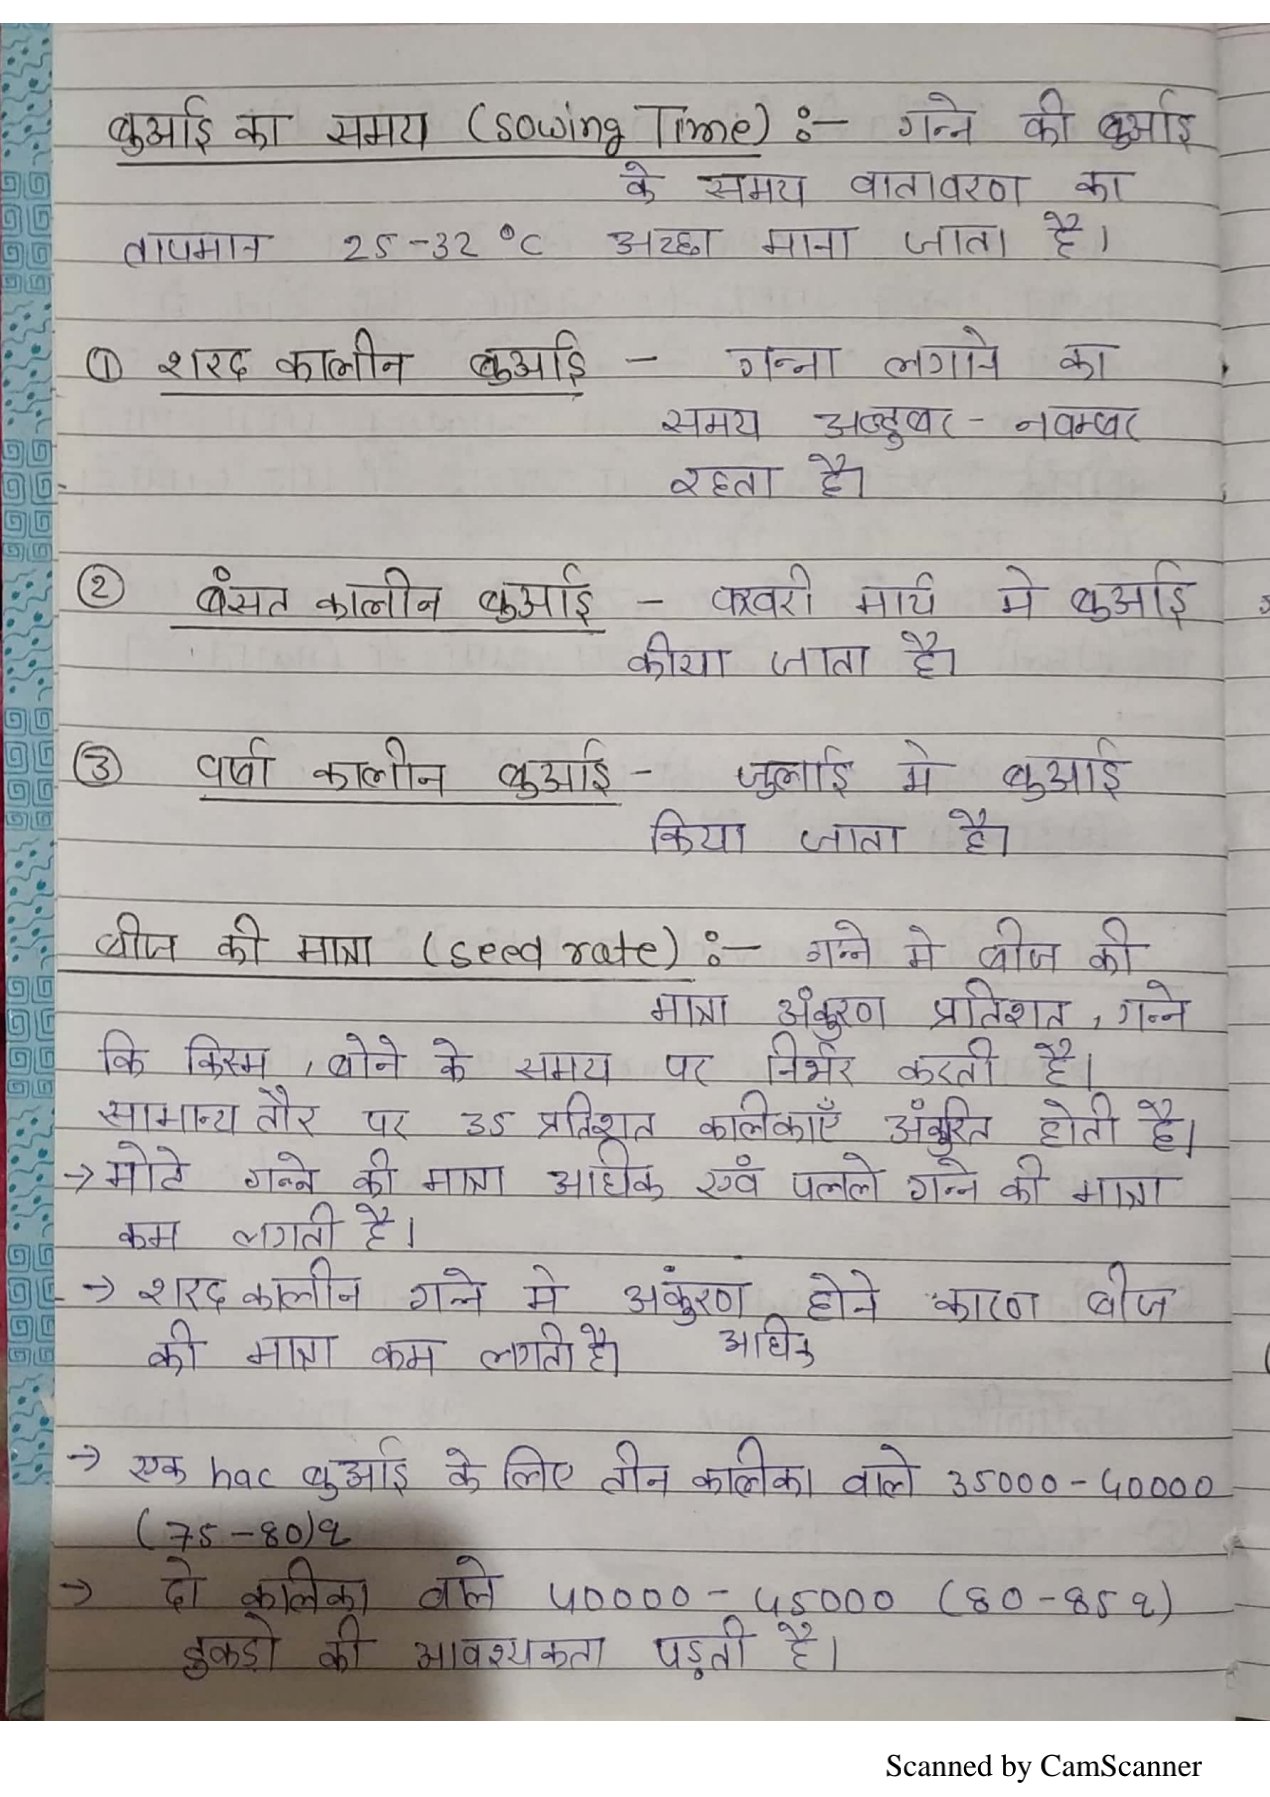 बुआई का समय (sowing Time) :- गन्ने की बुआई
के समय वातावरण का
तापमान 25-32 °C अच्छा माना जाता है।
① शरद कालीन बुआई - गन्ना लगाने का
समय अक्टुबर - नवम्बर
रहता है।
② बंसत कालीन बुआई - फरवरी मार्च मे बुआई
कीया जाता है।
③ वर्षा कालीन बुआई - जुलाई मे बुआई
किया जाता है।
बीज की मात्रा (seed rate) :- गन्ने मे बीज की
मात्रा अंकुरण प्रतिशत, गन्ने
कि किस्म, बोने के समय पर निर्भर करती है।
सामान्य तौर पर 35 प्रतिशत कालिकाएँ अंकुरित होती है।
→ मोटे गन्ने की मात्रा अधिक एवं पतले गन्ने की मात्रा
कम लगती है।
→ शरद कालीन गन्ने मे अकुंरण होने कारण बीज
की मात्रा कम लगती है। अधिक
→ एक hac बुआई के लिए तीन कालीका वाले 35000-40000
(75-80)q
→ दो कलिका वाले 40000-45000 (80-85q)
टुकडो की आवश्यकता पड़ती है।
Scanned by CamScanner